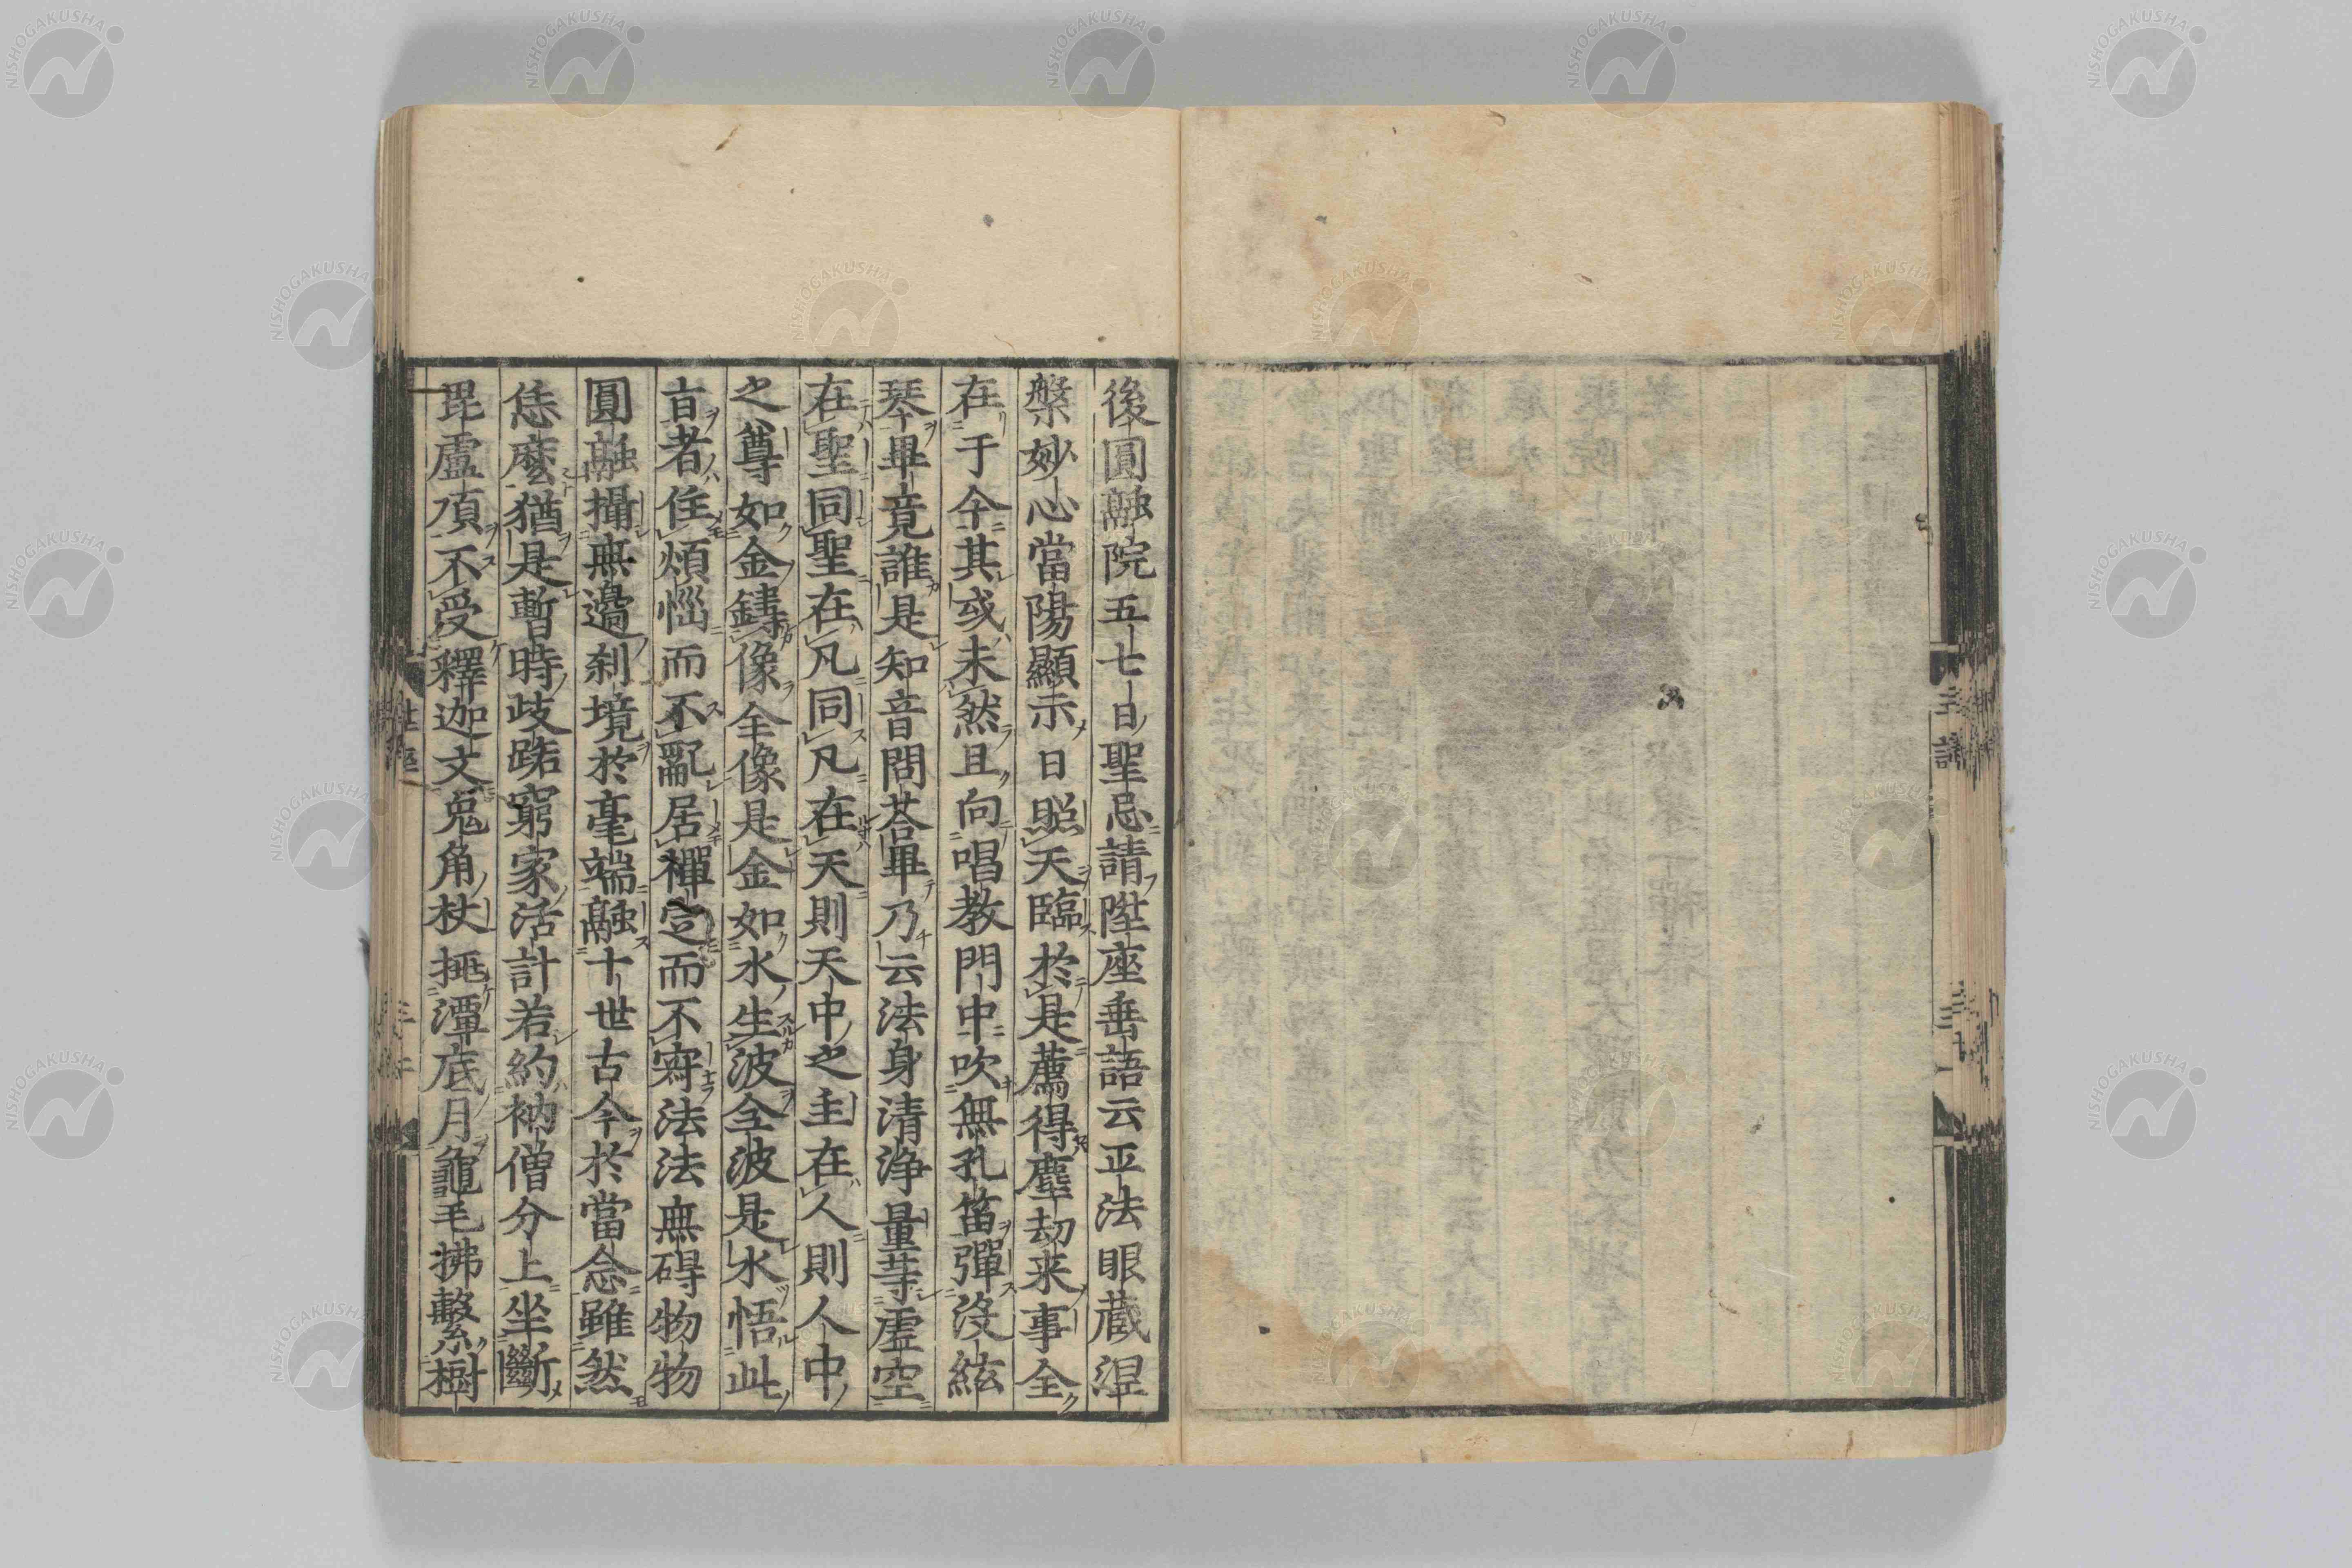 後圓融院五七日聖忌請陞座垂語云正法眼藏涅
槃妙心當陽顯示日照天臨於是薦得塵劫来事全
在于今其或未然且向唱教門中吹無孔笛彈沒絃
琴畢竟誰是知音問荅畢乃云法身清淨量等虛空
在聖同聖在凡同凡在天則天中之主在人則人中
之尊如金鑄像全像是金如水生波全波是水悟此
㫖者住煩惱而不亂居禪定而不寂法法無碍物物
圓融攝無邊刹境於毫端融十世古今於當念雖然
恁麽猶是暫時歧路窮家活計若約衲僧分上坐斷
毘盧頂不受釋迦文兔角杖挑潭底月龜毛拂繫樹
NISHOGAKUSHA